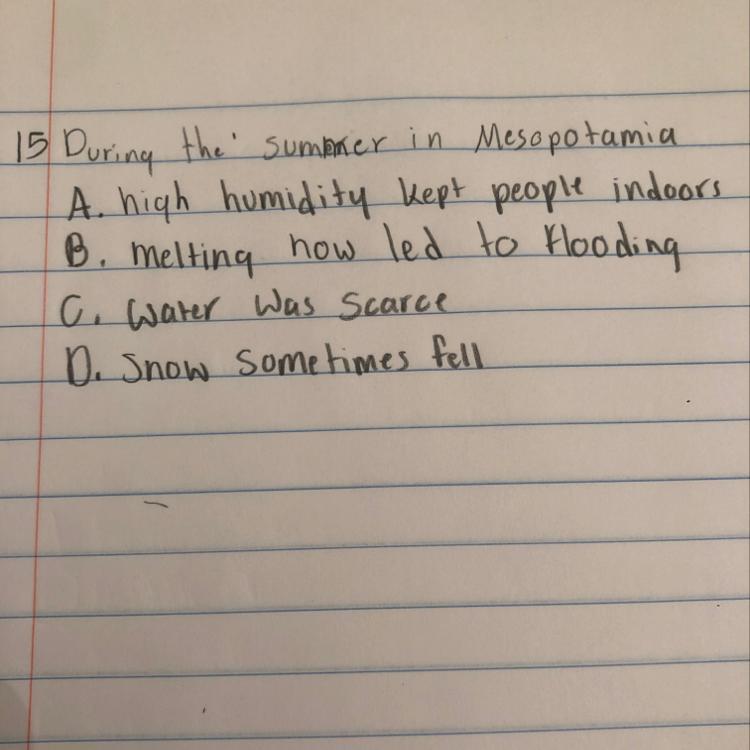 15 During the summer in Mesopotamia
A. high humidity kept people indoors
B. melting now led to flooding
C. water was scarce
D. Snow Sometimes fell